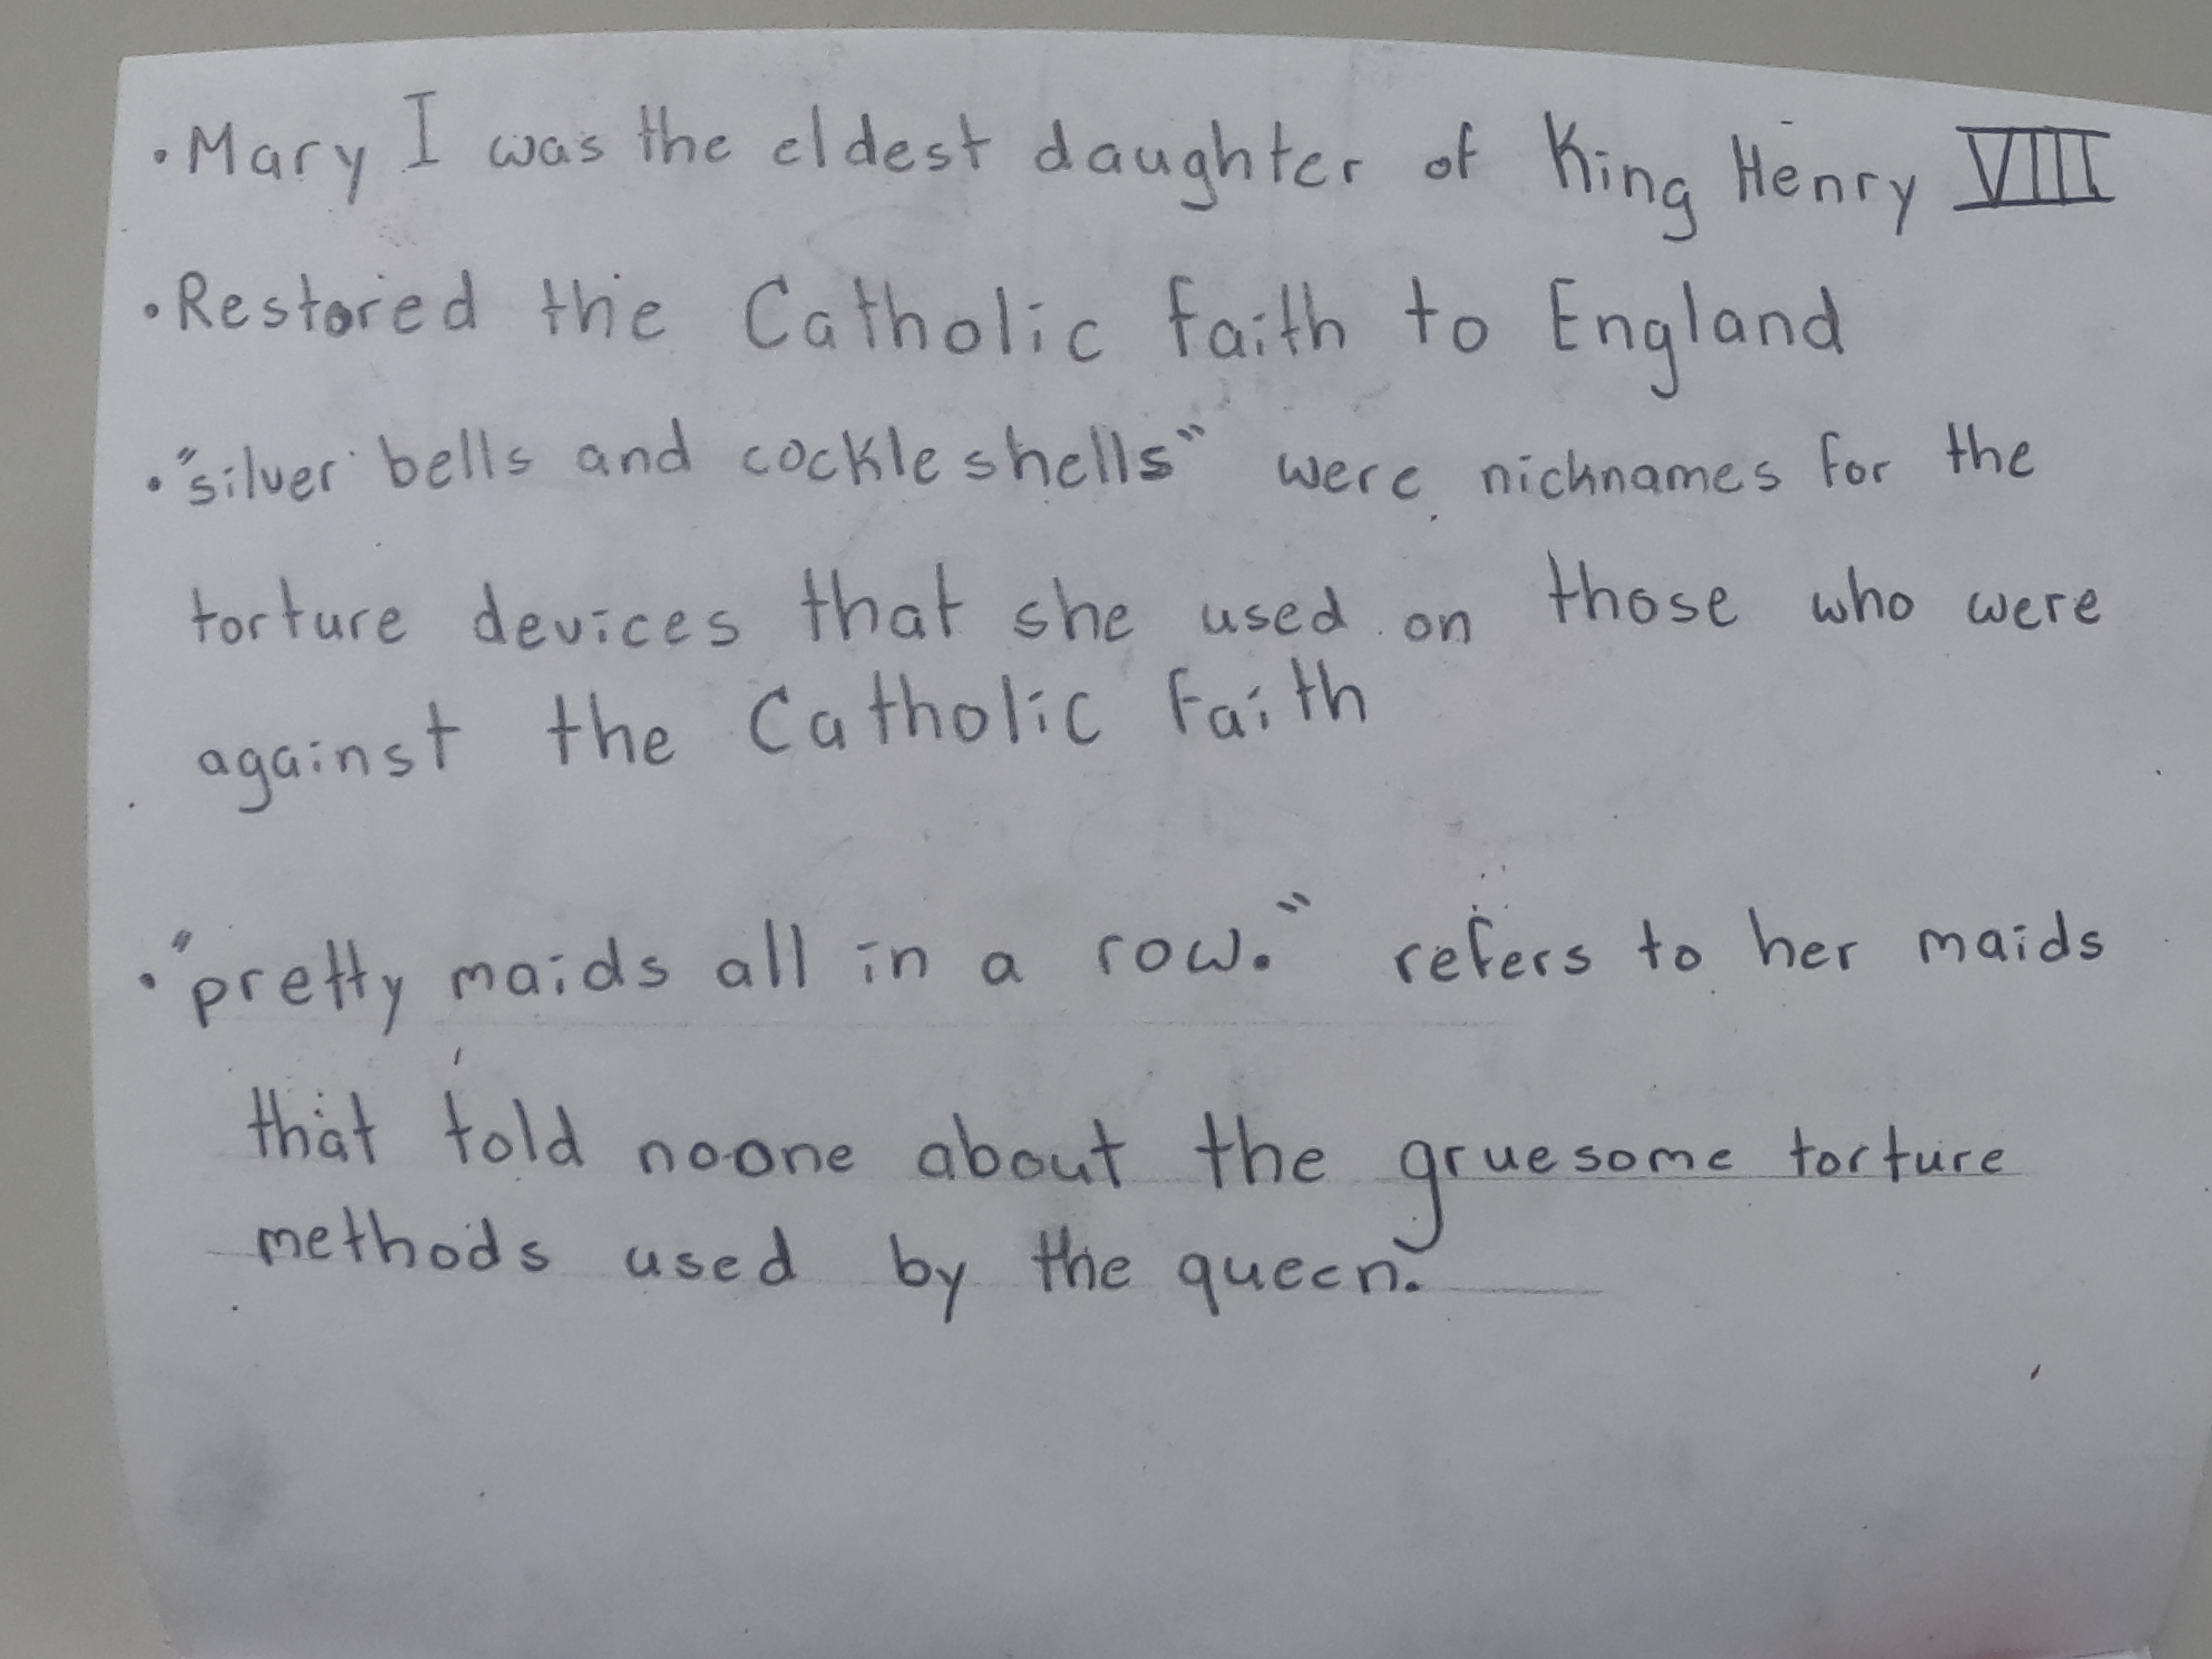 ·Mary I was the eldest daughter of King Henry VIII
·Restored the Catholic faith to England
·"silver bells and cockle shells" were nicknames for the
torture devices that she used on those who were
against the Catholic Faith
·"pretty maids all in a row." refers to her maids
that told noone about the gruesome torture
methods used by the queen.